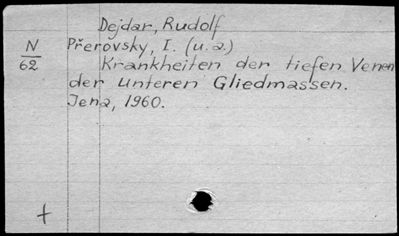 Dejdar, Rudolf
N
62
Přerovsky, I. (u.a.)
Krankheiten der tiefen Venen
der unteren Gliedmassen.
Jena, 1960.
+